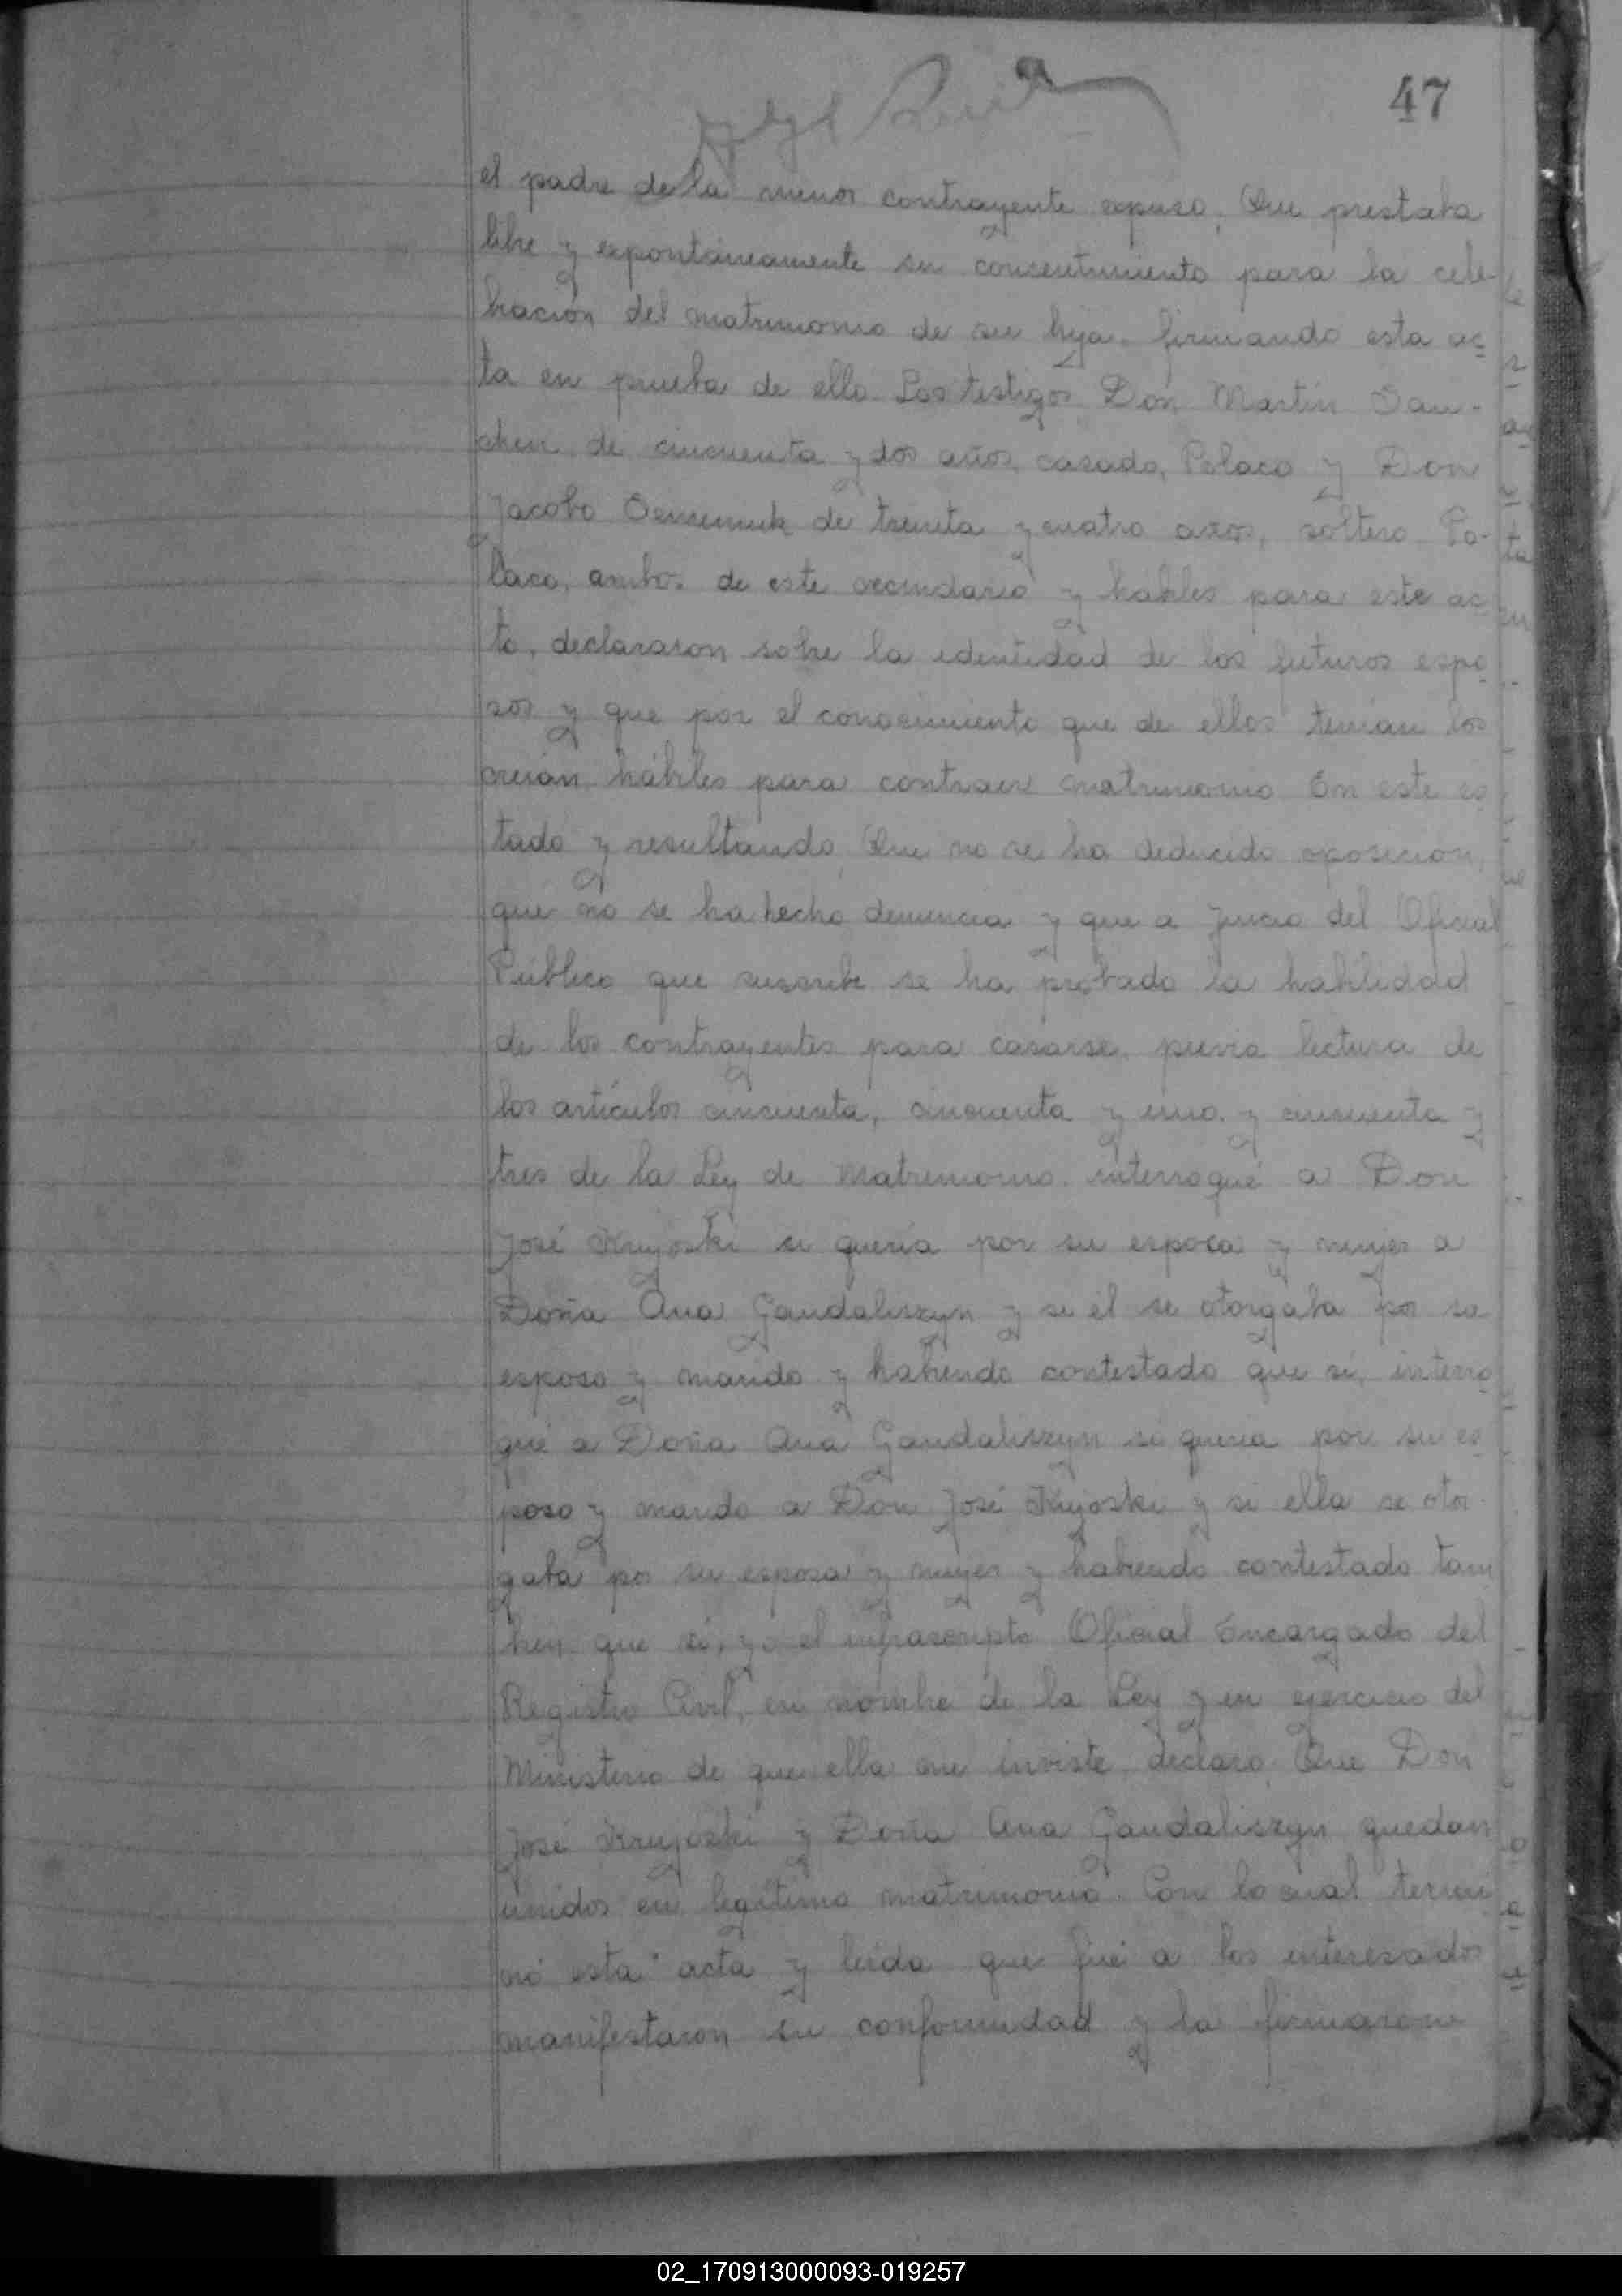 47
el padre de la menor contrayente expuso, Que prestaba
libre y expontáneamente su consentimiento para la cele-
bración del matrimonio de su hija. firmando esta ac-
ta en prueba de ello. Los testigos Don Martín
de cincuenta y dos años, casado, Polaco y Don
Jacobo de treinta y cuatro años, soltero Po-
laco, ambos de este vecindario y hábiles para este ac-
to, declararon sobre la identidad de los futuros espo-
sos y que por el conocimiento que de ellos tenían los
creían hábiles para contraer matrimonio En este es
tado y resultando, Que no se ha deducido oposición,
que no se ha hecho denuncia y que a juicio del Oficial
Público que suscribe se ha probado la habilidad
de los contrayentes para casarse, previa lectura de
los artículos cincuenta, cincuenta y uno y cincuenta y
tres de la Ley de Matrimonio interrogué a Don
José Krujoski si quería por su esposa y mujer a
Doña Ana Gandaliszyn y si él se otorgaba por su
esposo y marido y habiendo contestado que sí, interro
gué a Doña Ana Gandaliszyn si quería por su es
poso y marido a Don José Krujoski y si ella se otor
gaba por su esposa y mujer y habiendo contestado tam
bien que sí, yo el infrascripto Oficial Encargado del
Registro Civil, en nombre de la Ley y en ejercicio del
Ministerio de que ella me inviste declaro, Que Don
José Krujoski y Doña Ana Gandaliszyn quedan
unidos en legítimo matrimonio. Con lo cual termi
nó esta acta y leída que fué a los interesados
manifestaron su conformidad y la firmaron
02_170913000093-019257